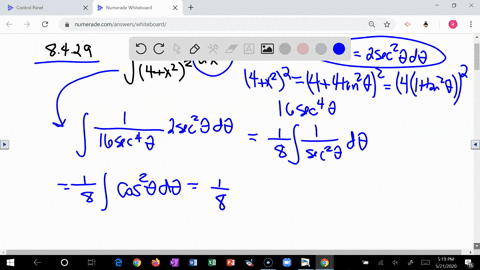 Control Panel
Numerade Whiteboard
numerade.com/answers/whiteboard/
8.4.29
∫(4+x²)²
= 2sec²θdθ
(4+x²)² = (4+4tan²θ)² = (4(1+tan²θ))²
16sec⁴θ
∫ 1/(16sec⁴θ) 2sec²θdθ = 1/8 ∫ 1/(sec²θ) dθ
= 1/8 ∫ cos²θdθ = 1/8
5:19 PM
5/21/2020